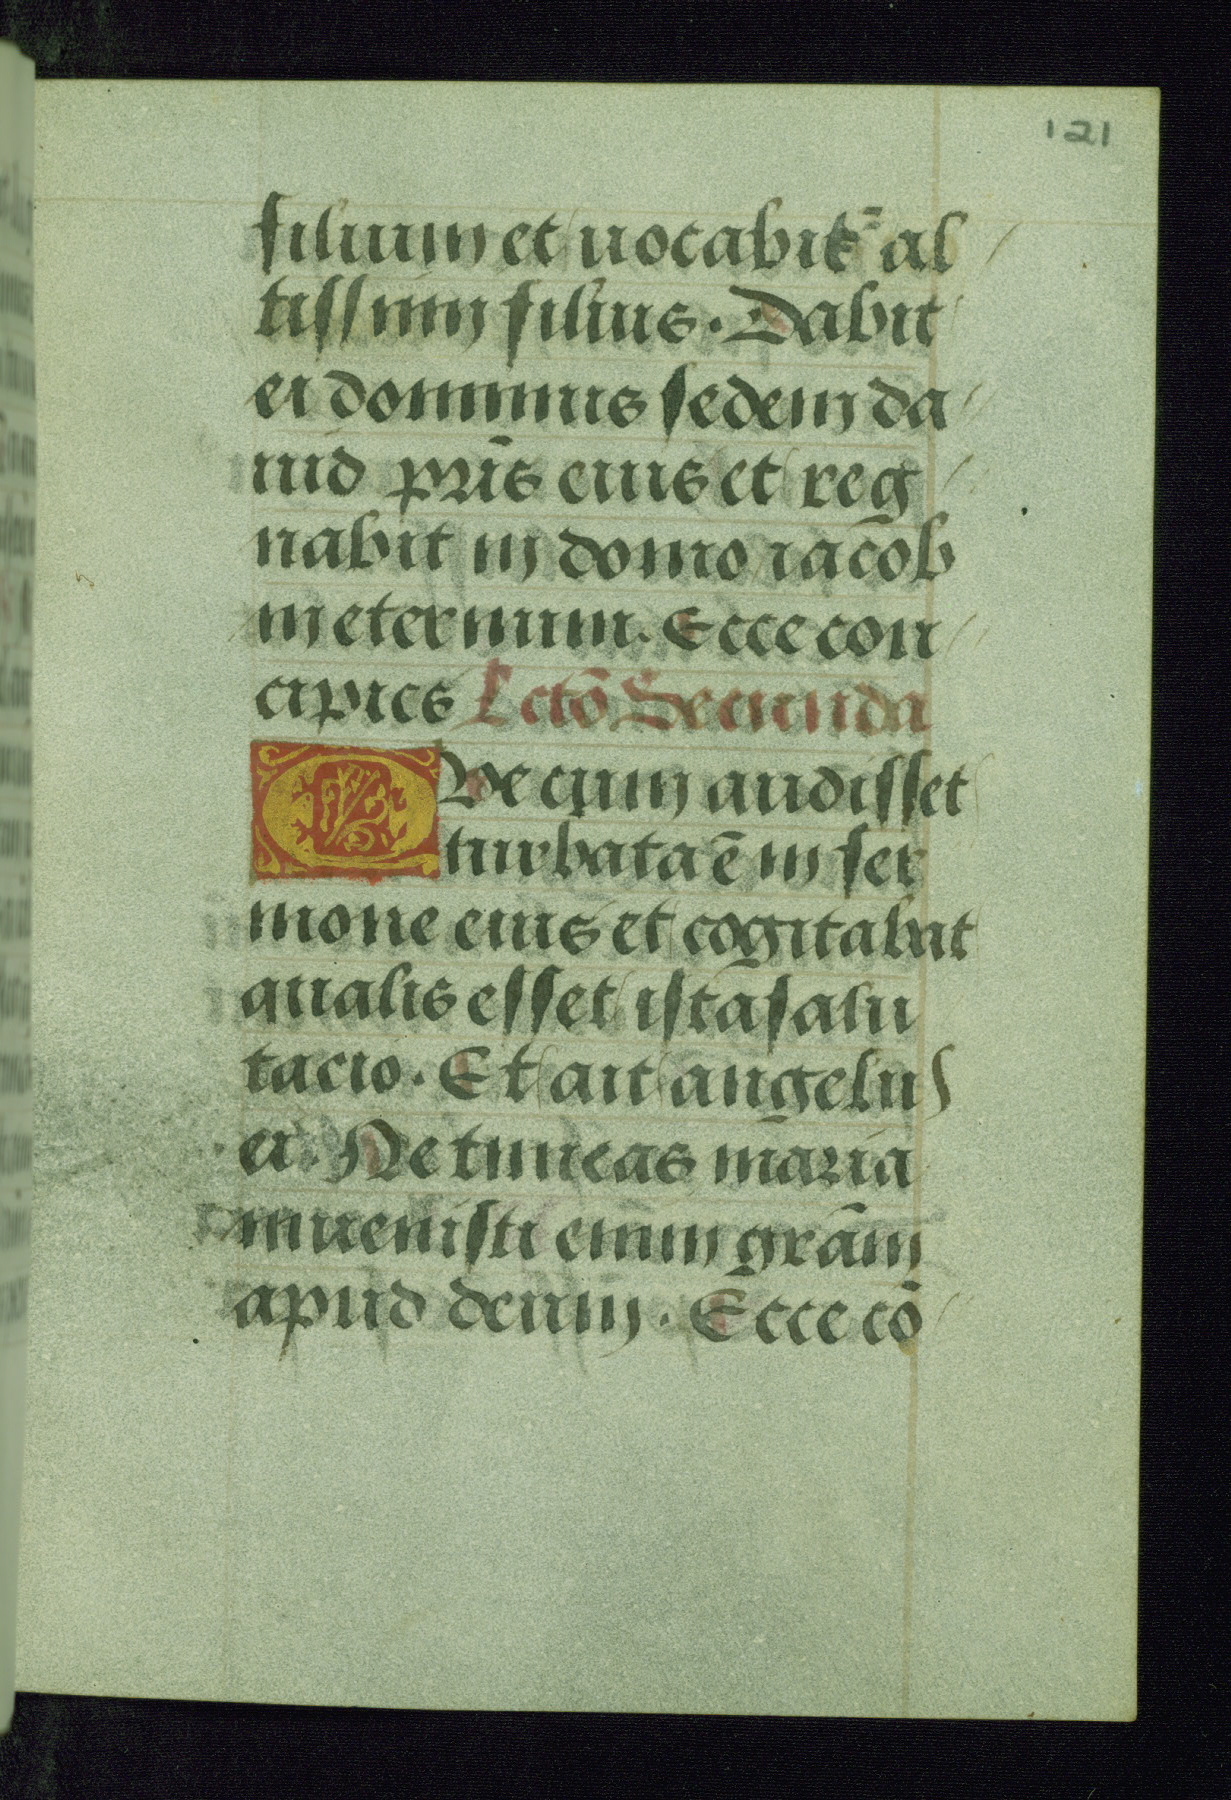 121
filium et uocabit᷑ al
tissimi filius. Dabit
ei dominus sedem da
uid pr̄is eius et reg
nabit in domo iacōb
in eternum. Ecce con
cipies Lectō Secunda
Que cum audisset
turbata ē in ser
mone eius et cogitabat
qualis esset ista salu
tacio. Et ait angelus
ei. Ne timeas maria
inuenisti enim grām
apud deum. Ecce cō